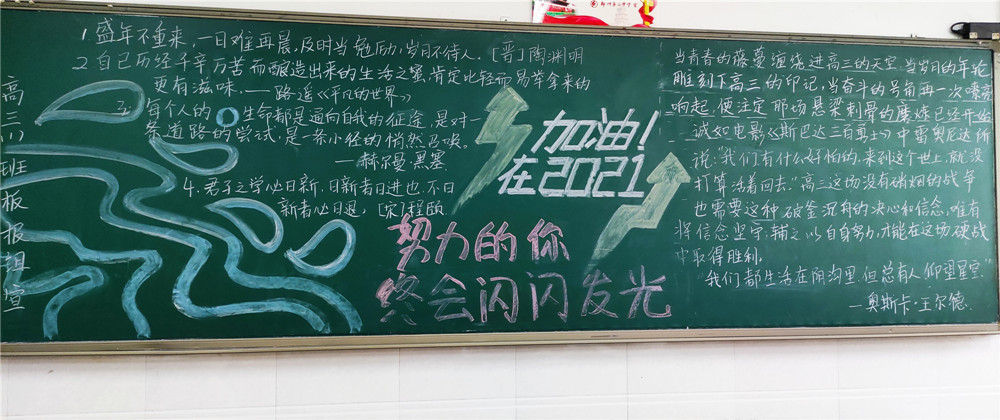 高三(1)班板报组宣
1 盛年不重来，一日难再晨，及时当勉励，岁月不待人。[晋]陶渊明
2 自己历经千辛万苦而酿造出来的生活之蜜，肯定比轻而易举拿来的
更有滋味。——路遥《平凡的世界》
3. 每个人的生命都是通向自我的征途，是对一
条道路的尝试，是一条小径的悄然召唤。
——赫尔曼·黑塞
4. 君子之学必日新，日新者日进也，不日
新者必日退，[宋]程颐
加油！
在2021
努力的你
终会闪闪发光
当青青的藤蔓缠绕进高三的天空，当岁月的年轮
雕刻下高三的印记，当奋斗的号角再一次嘹亮
响起，便注定那场悬梁刺骨的磨炼已经开始
诚如电影《斯巴达三百勇士》中雷奥尼达所
说："我们有什么好怕的，来到这个世上，就没
打算活着回去."高三这场没有硝烟的战争
也需要这种破釜沉舟的决心和信念，唯有
将信念坚守，辅之以自身努力，才能在这场硬战
中取得胜利。
"我们都生活在阴沟里，但总有人仰望星空."
—奥斯卡·王尔德